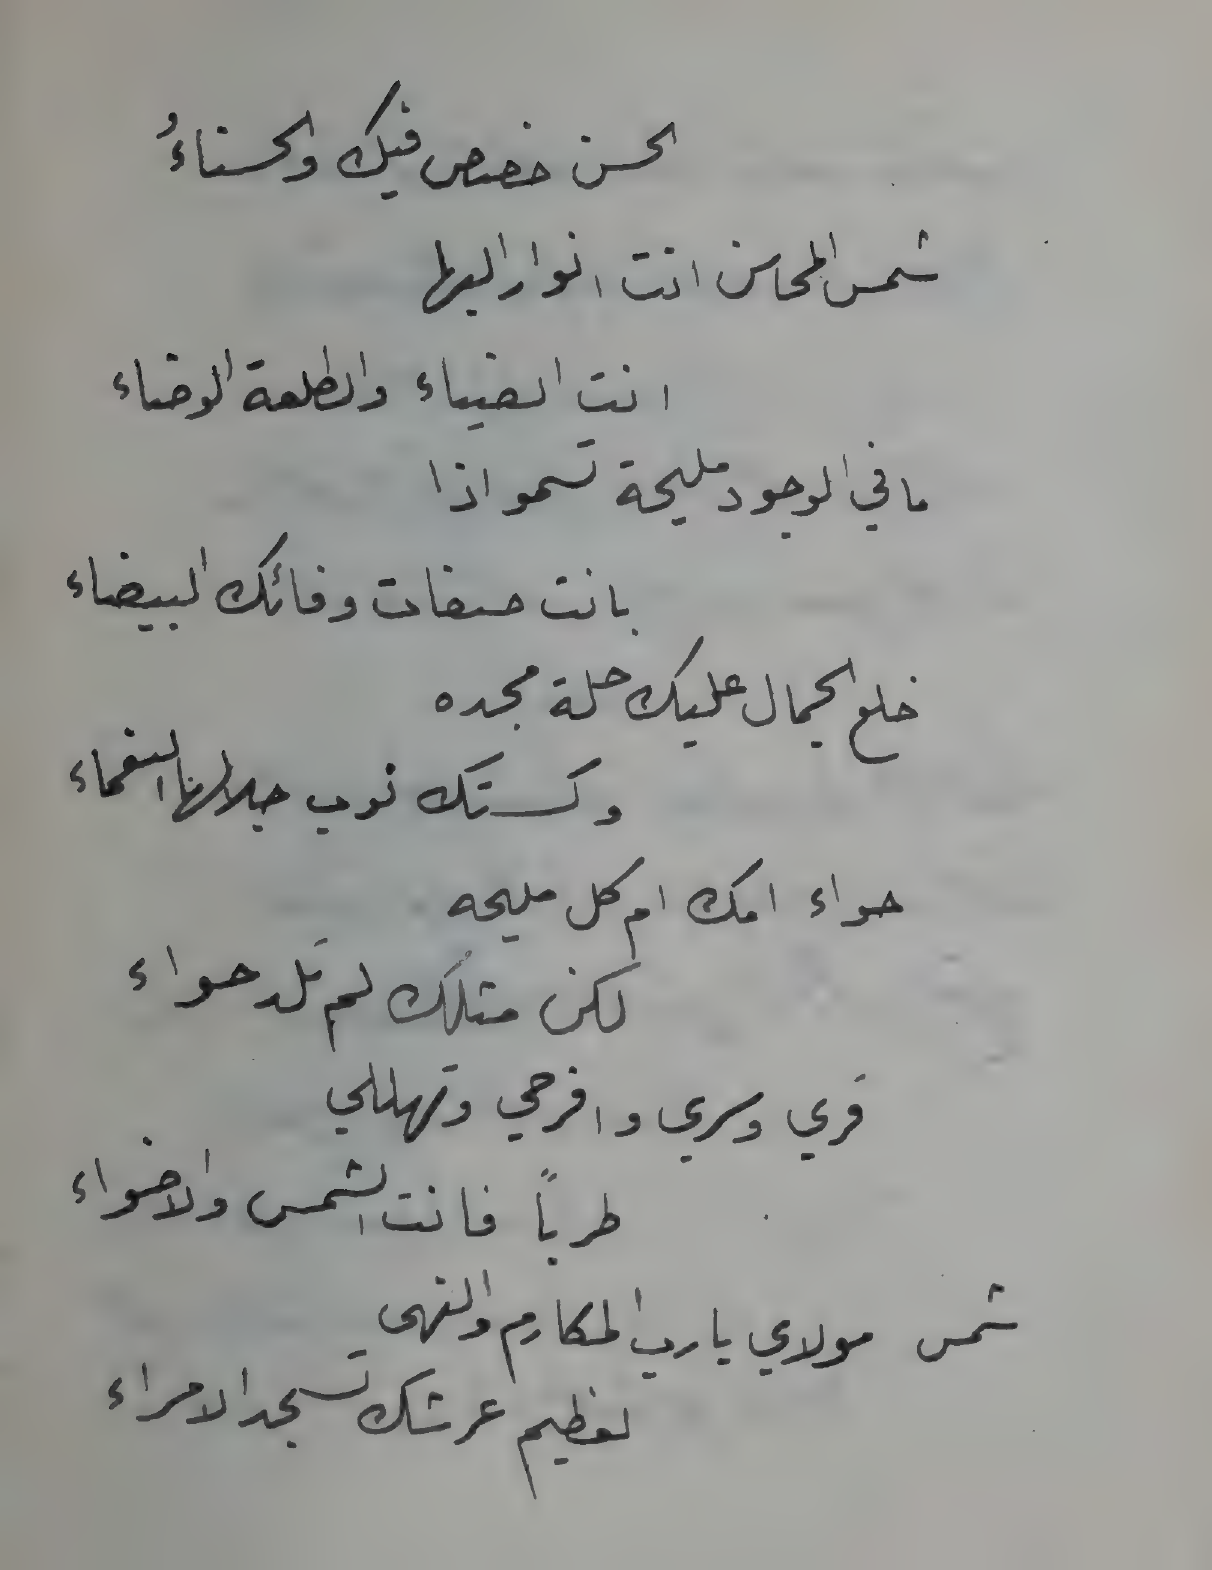 الحسن خصص فيك والحسناءُ
شمس المحاسن انت انوار البها
انت الضياء والطلعة الوضاء
ما في الوجود مليحة تسمو اذا
بانت صفات وفائك البيضاء
خلع الجمال عليك حلة مجده
وكستك ثوب جلالها النعماء
حواء امك ام كل مليحه
لكن مثلك لم تلد حواء
قري وسري وافرحي وتهللي
طرباً فانت الشمس والاضواء
شمس مولاي يا رب المكارم والنهى
لعظيم عرشك تسجد الامراء